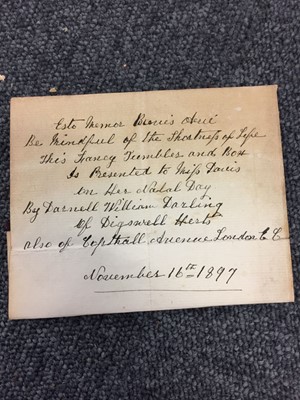 Esto Memor Brevis Aevi
Be Mindful of the Shortness of Life
This Fancy Tumbler and Box
Is Presented to Miss Davis
on Her Natal Day
By Darnell William Darling
Of Digswell Herts
also of Copthall Avenue London E C
November 16th 1897